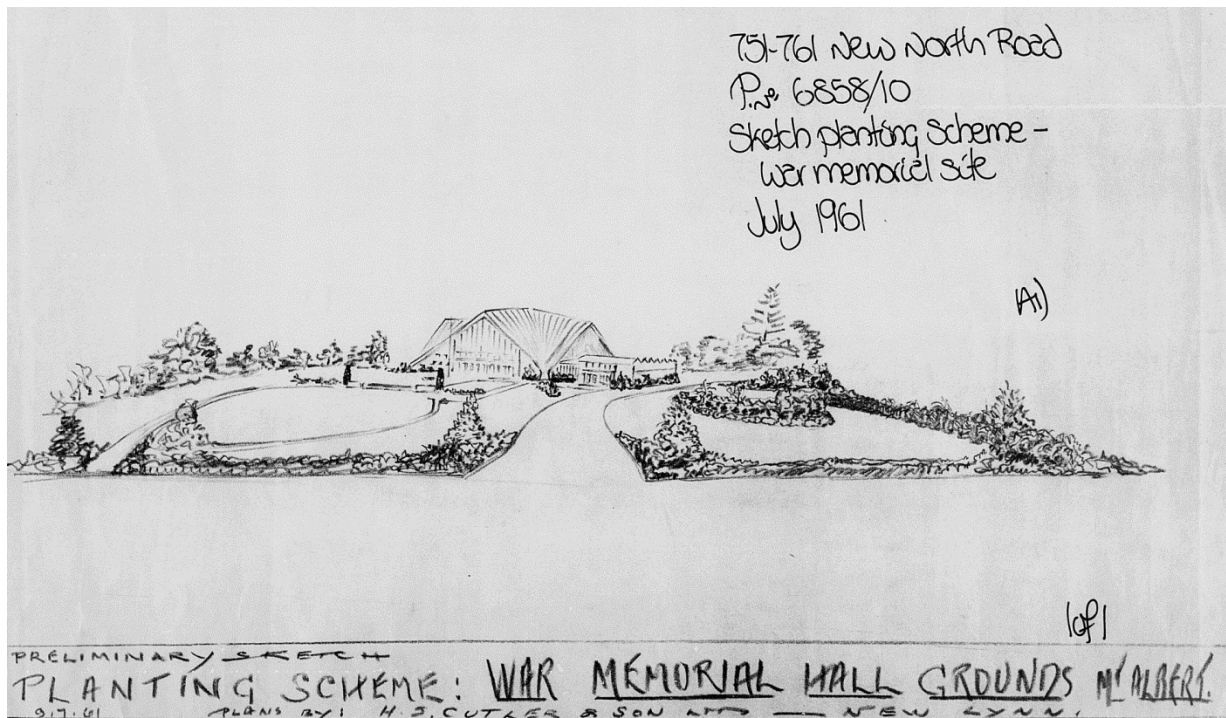 751-761 New North Road
P.No. 6858/10
Sketch planting Scheme -
war memorial site
July 1961
(A1)
1 of 1
PRELIMINARY SKETCH
PLANTING SCHEME: WAR MEMORIAL HALL GROUNDS Mt ALBERT.
9.7.61 PLANS BY: H.J. CUTLER & SON LTD — NEW LYNN.